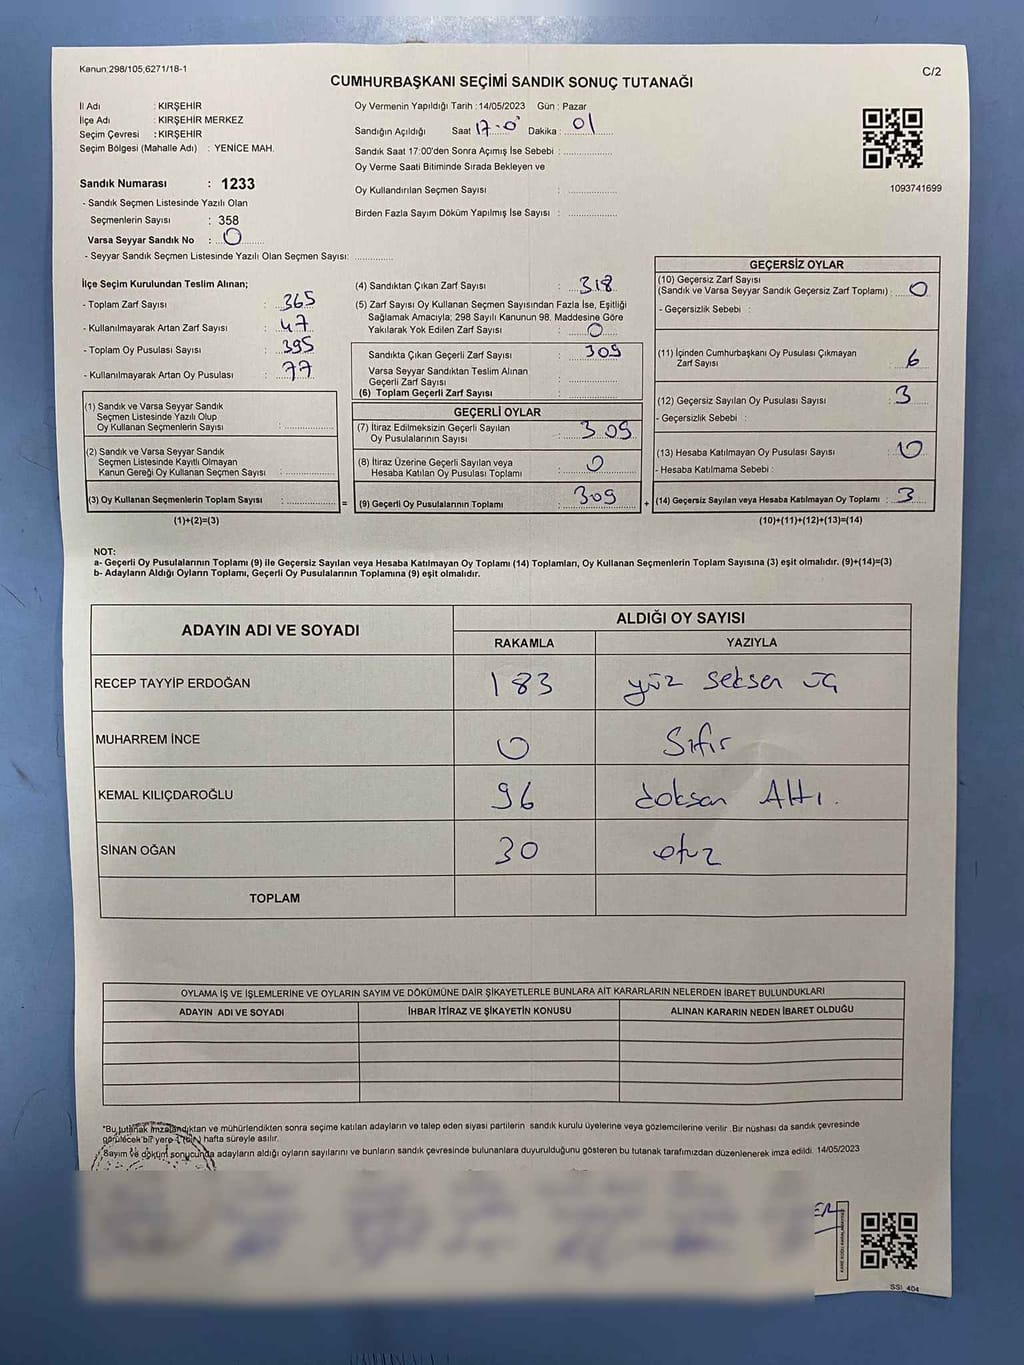 Kanun:298/105,6271/18-1
C/2
CUMHURBAŞKANI SEÇİMİ SANDIK SONUÇ TUTANAĞI
İl Adı : KIRŞEHİR
İlçe Adı : KIRŞEHİR MERKEZ
Seçim Çevresi : KIRŞEHİR
Seçim Bölgesi (Mahalle Adı) : YENİCE MAH.
Sandık Numarası : 1233
- Sandık Seçmen Listesinde Yazılı Olan
Seçmenlerin Sayısı : 358
Varsa Seyyar Sandık No : 0
- Seyyar Sandık Seçmen Listesinde Yazılı Olan Seçmen Sayısı:
Oy Vermenin Yapıldığı Tarih :14/05/2023 Gün : Pazar
Sandığın Açıldığı Saat 17.0 Dakika : 01
Sandık Saat 17:00'den Sonra Açımış İse Sebebi :
Oy Verme Saati Bitiminde Sırada Bekleyen ve
Oy Kullandırılan Seçmen Sayısı :
Birden Fazla Sayım Döküm Yapılmış İse Sayısı :
1093741699
İlçe Seçim Kurulundan Teslim Alınan;
- Toplam Zarf Sayısı : 365
- Kullanılmayarak Artan Zarf Sayısı : 47
- Toplam Oy Pusulası Sayısı : 395
- Kullanılmayarak Artan Oy Pusulası : 77
(1) Sandık ve Varsa Seyyar Sandık
Seçmen Listesinde Yazılı Olup
Oy Kullanan Seçmenlerin Sayısı :
(2) Sandık ve Varsa Seyyar Sandık
Seçmen Listesinde Kayıtlı Olmayan
Kanun Gereği Oy Kullanan Seçmen Sayısı :
(3) Oy Kullanan Seçmenlerin Toplam Sayısı : =
(1)+(2)=(3)
(4) Sandıktan Çıkan Zarf Sayısı : 318
(5) Zarf Sayısı Oy Kullanan Seçmen Sayısından Fazla İse, Eşitliği
Sağlamak Amacıyla; 298 Sayılı Kanunun 98. Maddesine Göre
Yakılarak Yok Edilen Zarf Sayısı : 0
Sandıkta Çıkan Geçerli Zarf Sayısı : 309
Varsa Seyyar Sandıktan Teslim Alınan
Geçerli Zarf Sayısı :
(6) Toplam Geçerli Zarf Sayısı :
GEÇERLİ OYLAR
(7) İtiraz Edilmeksizin Geçerli Sayılan
Oy Pusulalarının Sayısı : 309
(8) İtiraz Üzerine Geçerli Sayılan veya
Hesaba Katılan Oy Pusulası Toplamı : 0
(9) Geçerli Oy Pusulalarının Toplamı : 309 +
GEÇERSİZ OYLAR
(10) Geçersiz Zarf Sayısı
(Sandık ve Varsa Seyyar Sandık Geçersiz Zarf Toplamı) : 0
- Geçersizlik Sebebi :
(11) İçinden Cumhurbaşkanı Oy Pusulası Çıkmayan
Zarf Sayısı : 6
(12) Geçersiz Sayılan Oy Pusulası Sayısı : 3
- Geçersizlik Sebebi :
(13) Hesaba Katılmayan Oy Pusulası Sayısı :
- Hesaba Katılmama Sebebi :
(14) Geçersiz Sayılan veya Hesaba Katılmayan Oy Toplamı : 3
(10)+(11)+(12)+(13)=(14)
NOT:
a- Geçerli Oy Pusulalarının Toplamı (9) ile Geçersiz Sayılan veya Hesaba Katılmayan Oy Toplamı (14) Toplamları, Oy Kullanan Seçmenlerin Toplam Sayısına (3) eşit olmalıdır. (9)+(14)=(3)
b- Adayların Aldığı Oyların Toplamı, Geçerli Oy Pusulalarının Toplamına (9) eşit olmalıdır.
ADAYIN ADI VE SOYADI
ALDIĞI OY SAYISI
RAKAMLA YAZIYLA
RECEP TAYYİP ERDOĞAN 183 yüz seksen üç
MUHARREM İNCE 0 Sıfır
KEMAL KILIÇDAROĞLU 96 doksan Altı.
SİNAN OĞAN 30 otuz
TOPLAM
OYLAMA İŞ VE İŞLEMLERİNE VE OYLARIN SAYIM VE DÖKÜMÜNE DAİR ŞİKAYETLERLE BUNLARA AİT KARARLARIN NELERDEN İBARET BULUNDUKLARI
ADAYIN ADI VE SOYADI İHBAR İTİRAZ VE ŞİKAYETİN KONUSU ALINAN KARARIN NEDEN İBARET OLDUĞU
*Bu tutanak imzalandıktan ve mühürlendikten sonra seçime katılan adayların ve talep eden siyasi partilerin sandık kurulu üyelerine veya gözlemcilerine verilir .Bir nüshası da sandık çevresinde
görülecek bir yere 1 (bir) hafta süreyle asılır.
* Sayım ve döküm sonucunda adayların aldığı oyların sayılarını ve bunların sandık çevresinde bulunanlara duyurulduğunu gösteren bu tutanak tarafımızdan düzenlenerek imza edildi. 14/05/2023
SSİ_404